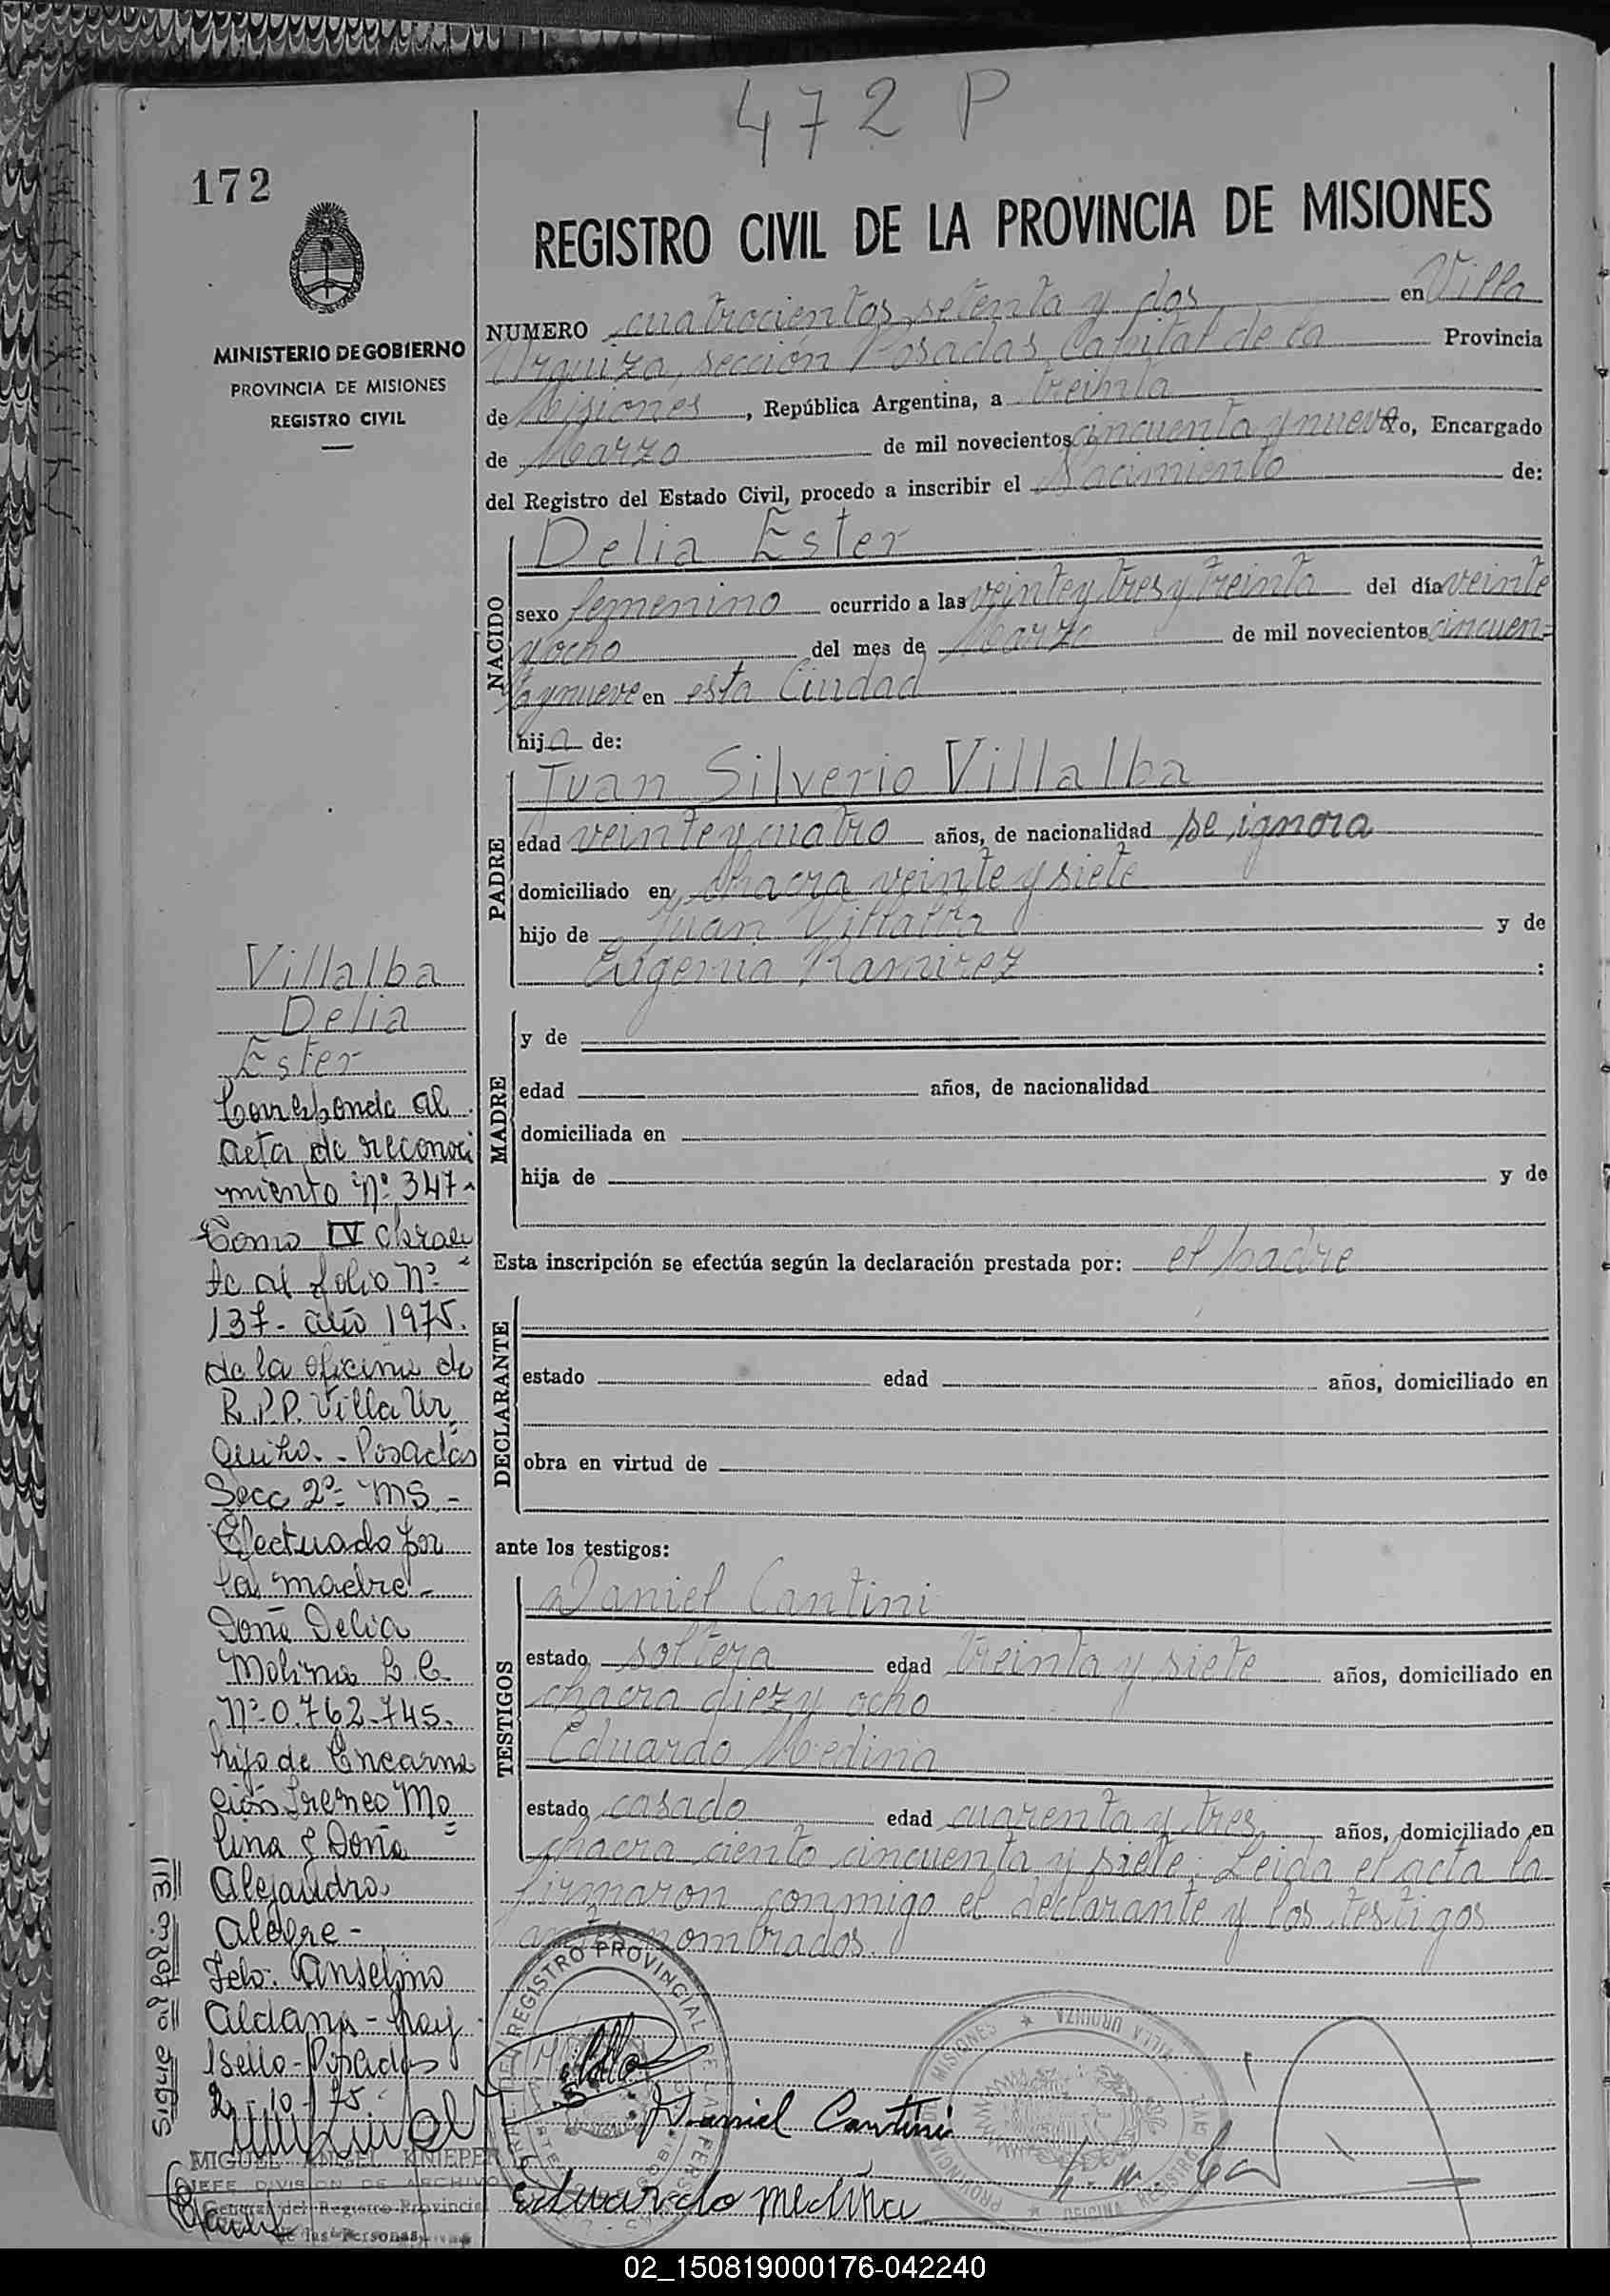 472 P
172
REGISTRO CIVIL DE LA PROVINCIA DE MISIONES
MINISTERIO DE GOBIERNO
PROVINCIA DE MISIONES
REGISTRO CIVIL
NUMERO cuatrocientos setenta y dos en Villa
Urquiza, sección Posadas Capital de la Provincia
de Misiones, República Argentina, a treinta
de Marzo de mil novecientos cincuenta y nueve Yo, Encargado
del Registro del Estado Civil, procedo a inscribir el Nacimiento de:
NACIDO
Delia Ester
sexo femenino ocurrido a las veinte y tres y treinta del día veinte
y ocho del mes de Marzo de mil novecientos cincuen=
ta y nueve en esta Ciudad
hija de:
PADRE
Juan Silverio Villalba
edad veinte y cuatro años, de nacionalidad se ignora
domiciliado en chacra veinte y siete
hijo de Juan Villalba y de
Eugenia Ramirez :
MADRE
y de
edad años, de nacionalidad
domiciliada en
hija de y de
Esta inscripción se efectúa según la declaración prestada por: el padre
DECLARANTE
estado edad años, domiciliado en
obra en virtud de
ante los testigos:
TESTIGOS
Daniel Cantini
estado soltera edad treinta y siete años, domiciliado en
chacra diez y ocho
Eduardo Medina
estado casado edad cuarenta y tres años, domiciliado en
chacra ciento cincuenta y siete. Leida el acta la
firmaron conmigo el declarante y los testigos
antes nombrados.
Villalba
Delia
Ester
Corresponde al
acta de reconoci
miento Nº 347-
Tomo IV obran
te al folio Nº
137- año 1975.
de la oficina de
R.P.P. Villa Ur
quiza. - Posadas
Secc 2ª - MS -
Efectuado por
la madre -
Doña Delia
Molina L.C.
Nº 0.762.745.
hija de Encarna
ción Ireneo Mo
lina y Doña
Alejandra
Alegre -
Fdo: Anselmo
Aldana - hay
1 sello - Posadas
2 - 10 - 75.
Sigue al folio 311
MIGUEL ANGEL KNIEPER
JEFE DIVISION DE ARCHIVO
General del Registro Provincial
de las Personas
REGISTRO PROVINCIAL DE LAS PERSONAS
Daniel Cantini
Eduardo Medina
VILLA URQUIZA
PROVINCIA DE MISIONES
OFICINA REGISTRO CIVIL
02_150819000176-042240